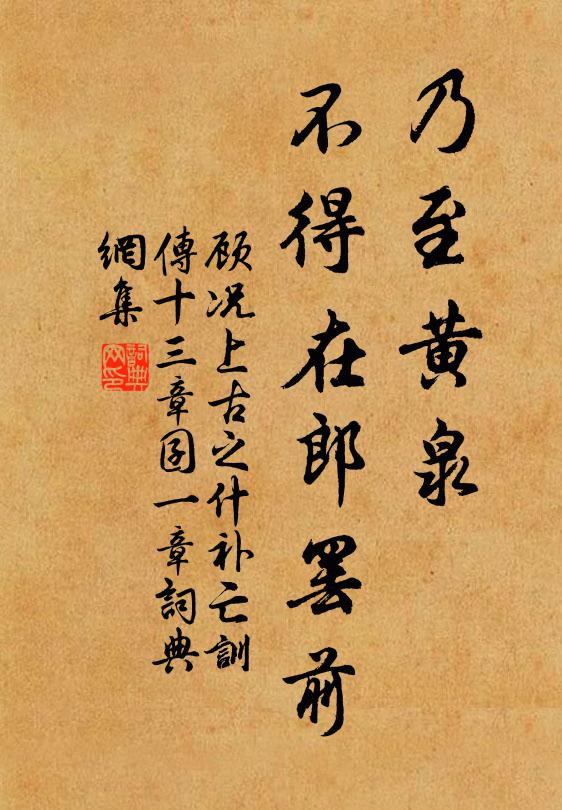 乃至黄泉
不得在郎罢前
顾况上古之什补亡訓
傳十三章囝一章詞典
網集
詞典
网印